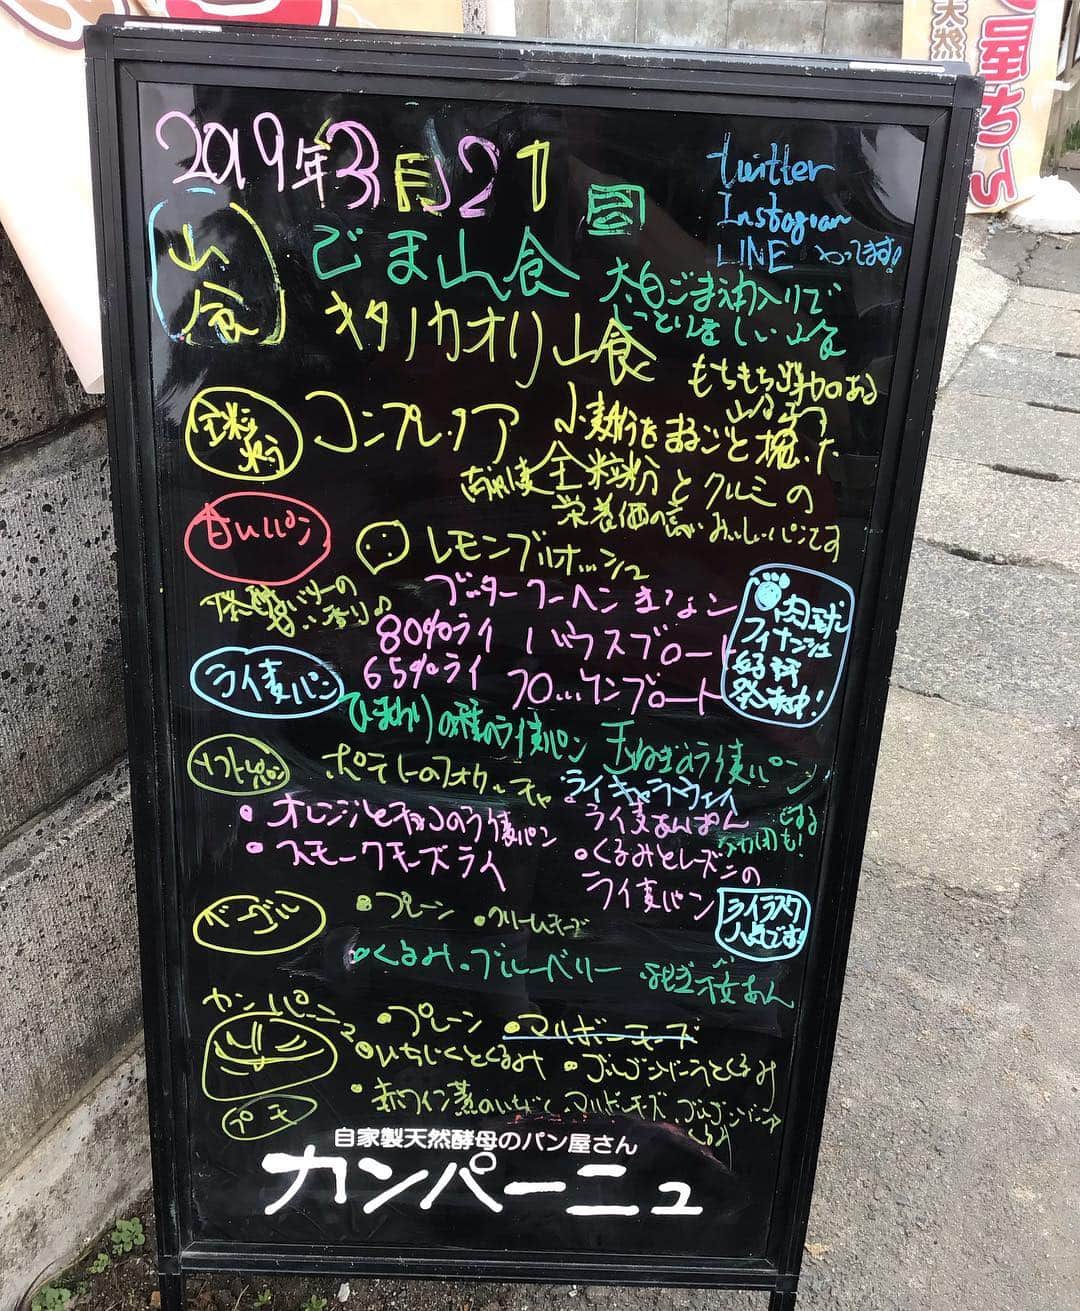 天然
屋ちへ
2019年3月21日
twitter
Instagram
LINE やってます!
山食
ごま山食
太白ごま油入りで
しっとり
山食
キタノカオリ山食
もちもち
全粒粉
コンプレッタ
小麦粉をまるごと挽いた
全粒粉とクルミの
栄養価の高いおいしいパンです
甘いパン
レモンブリオッシュ
発酵バターの香り♪
ブッタークーヘン
80%ライ バウスブロート
65%ライ フロッケンブロート
肉球
フィナンシェ
好評
発売中!
ライ麦パン
ひまわりの種のライ麦パン 玉ねぎのライ麦パン
ソフトなパン
ポテトのフォカッチャ
ライキャラウェイ
・オレンジとチョコのライ麦パン
ライ麦あんぱん
・スモークチーズライ
・くるみとレーズンの
ライ麦パン
ライラスク
人気です!
ベーグル
・プレーン ・クリームチーズ
・くるみ ・ブルーベリー よもぎ桜あん
カンパーニュ
・プレーン ・マルボーチーズ
・いちじくとくるみ
・赤ワイン煮のいちじく
プチ
自家製天然酵母のパン屋さん
カンパーニュ